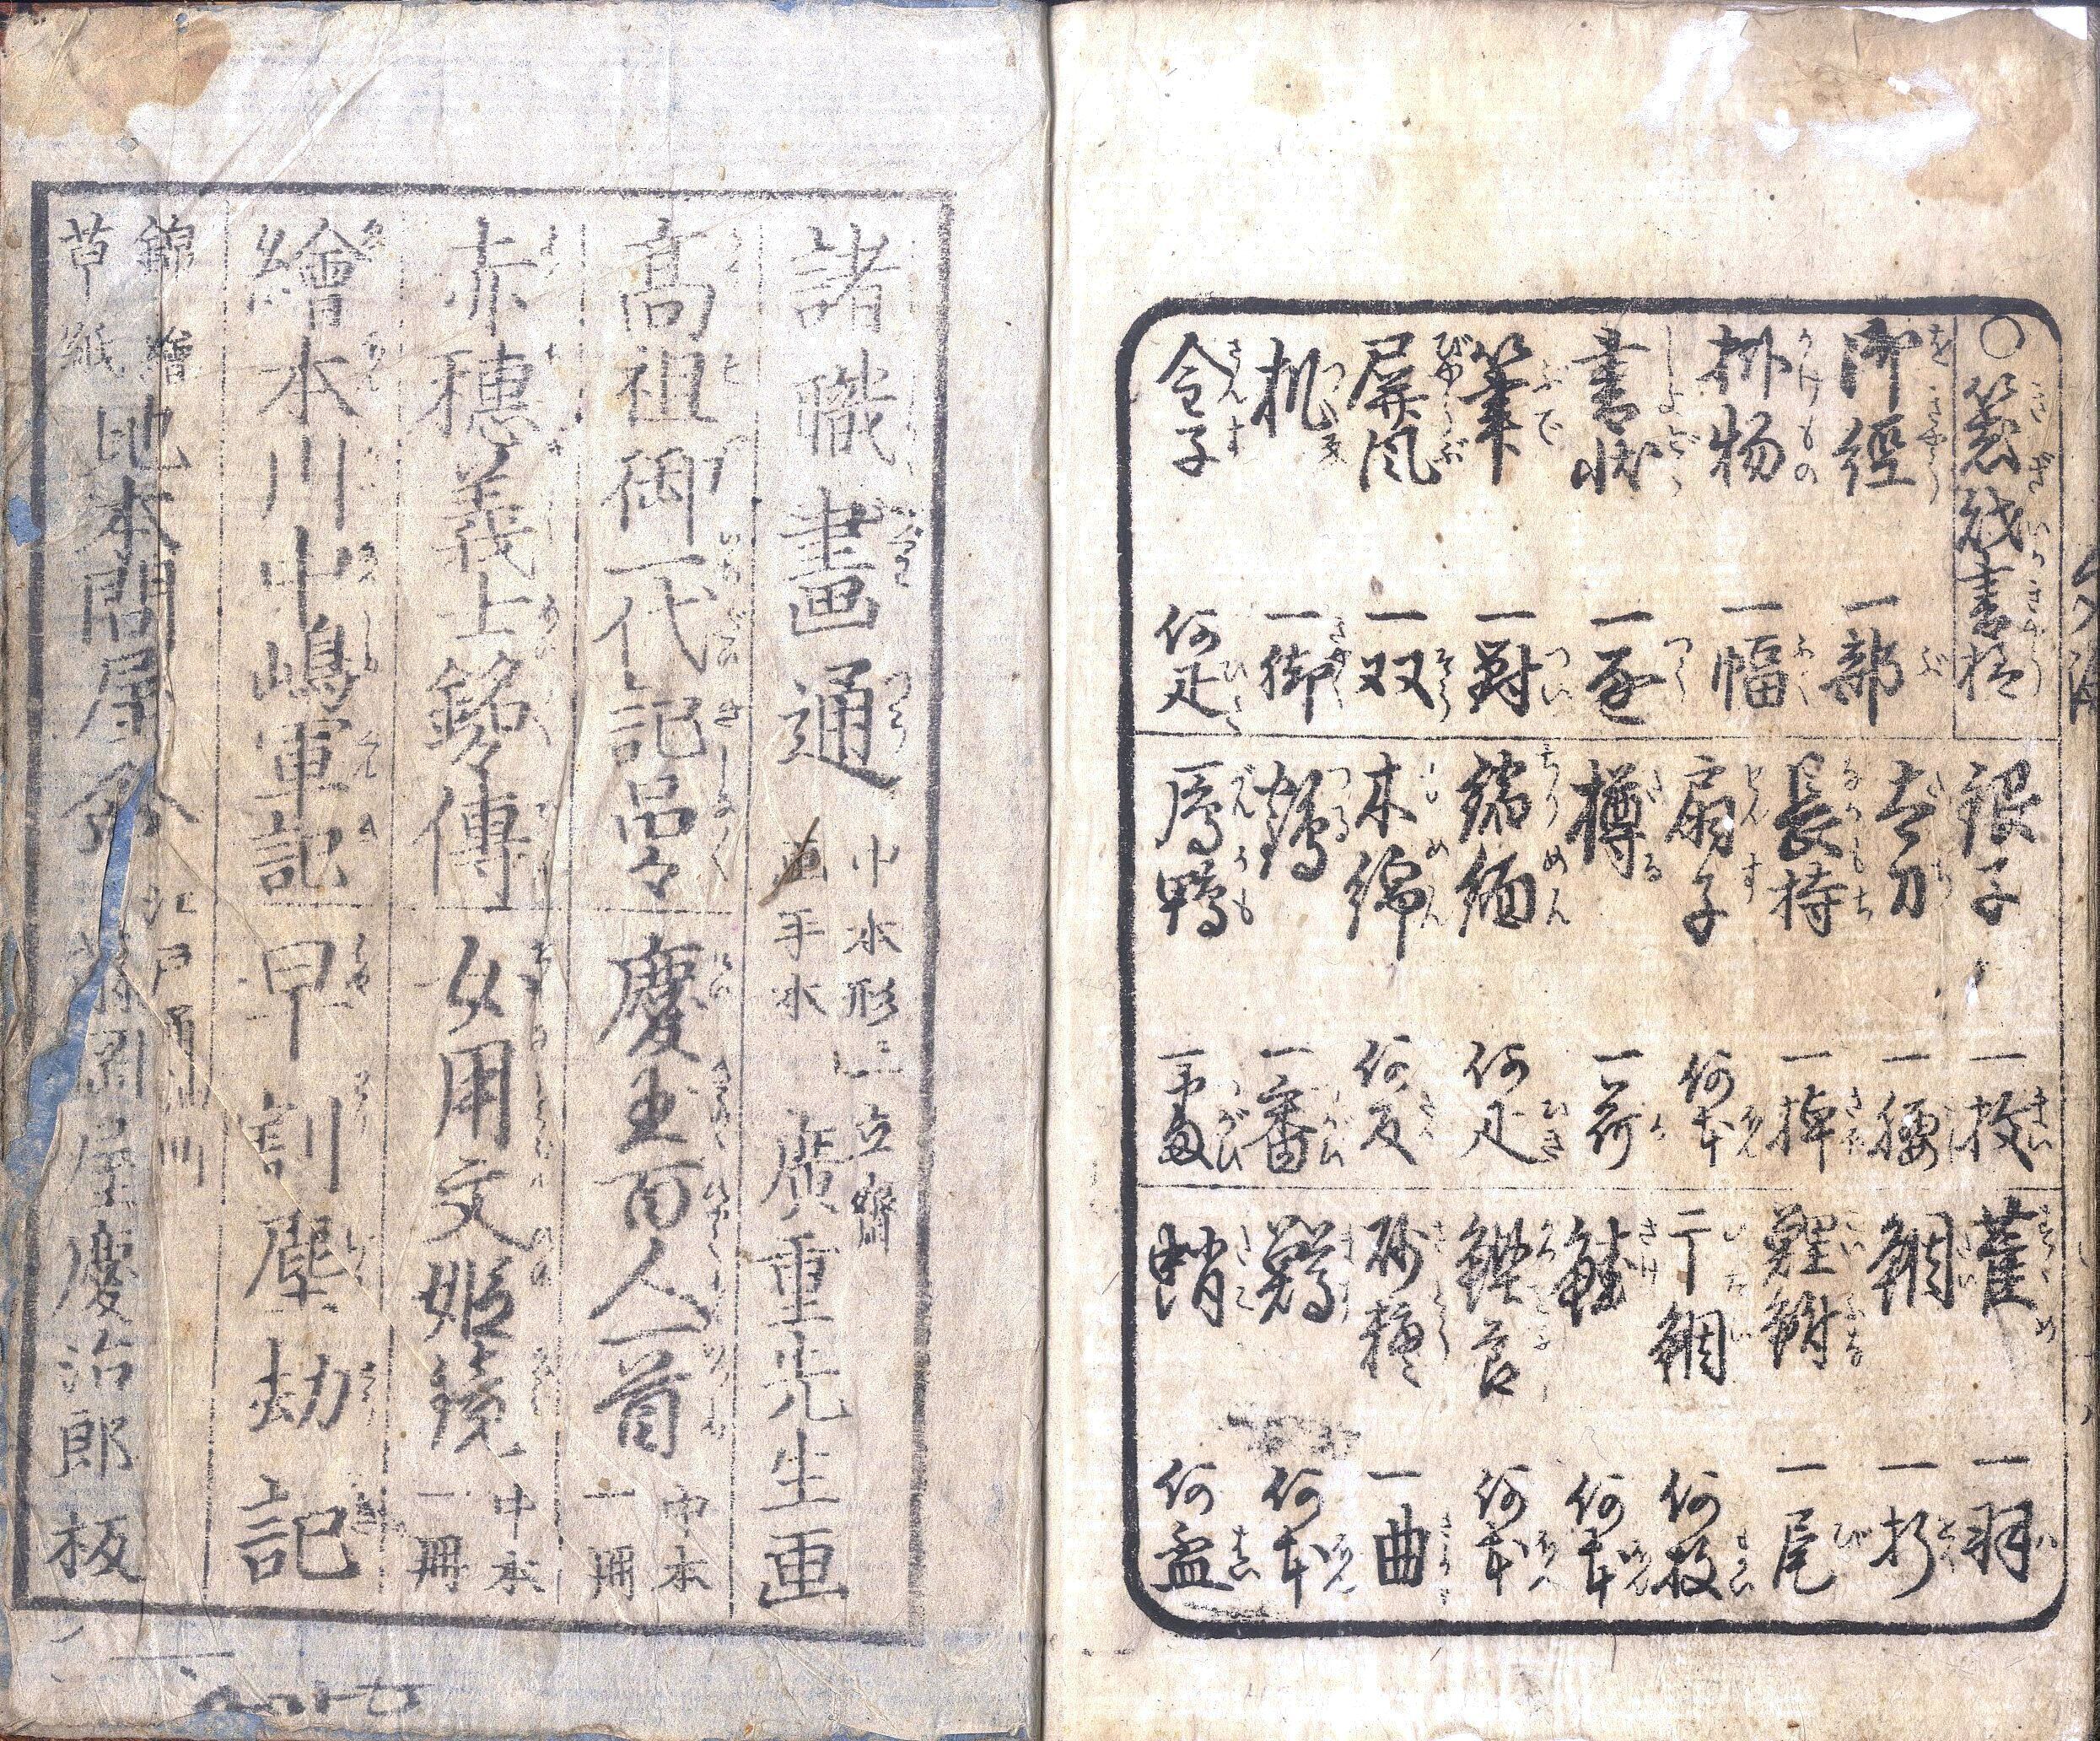 御經 一部
掛物 一幅
書状 一通
筆 一對
屏風 一双
机 一脚
何疋
銀子 一枚
太刀 一腰
長持 一棹
扇子 何本
樽 一荷
縮緬 何疋
木綿 何反
鶴 一番
鴈鴨 一番
一羽
鯛 一折
鯉鮒 一尾
干鯛 何枚
鮭 何本
鰹節 何本
砂糖 一曲
何本
蛸 何盃
諸職畫通
中本形二
画手本
立齋
廣重先生画
高祖御一代記品々
慶玉百人一首
中本
一冊
赤穗義士銘々傳
女用文姫鏡
中本
一冊
繪本川中嶋軍記
早割塵劫記
錦繪
草紙
地本問屋
江戸
藤岡屋慶治郎板